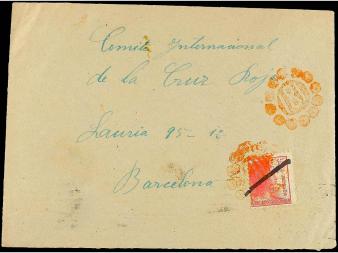 Comite Internacional
de la Cruz Roja
Lauria 95-12
Barcelona